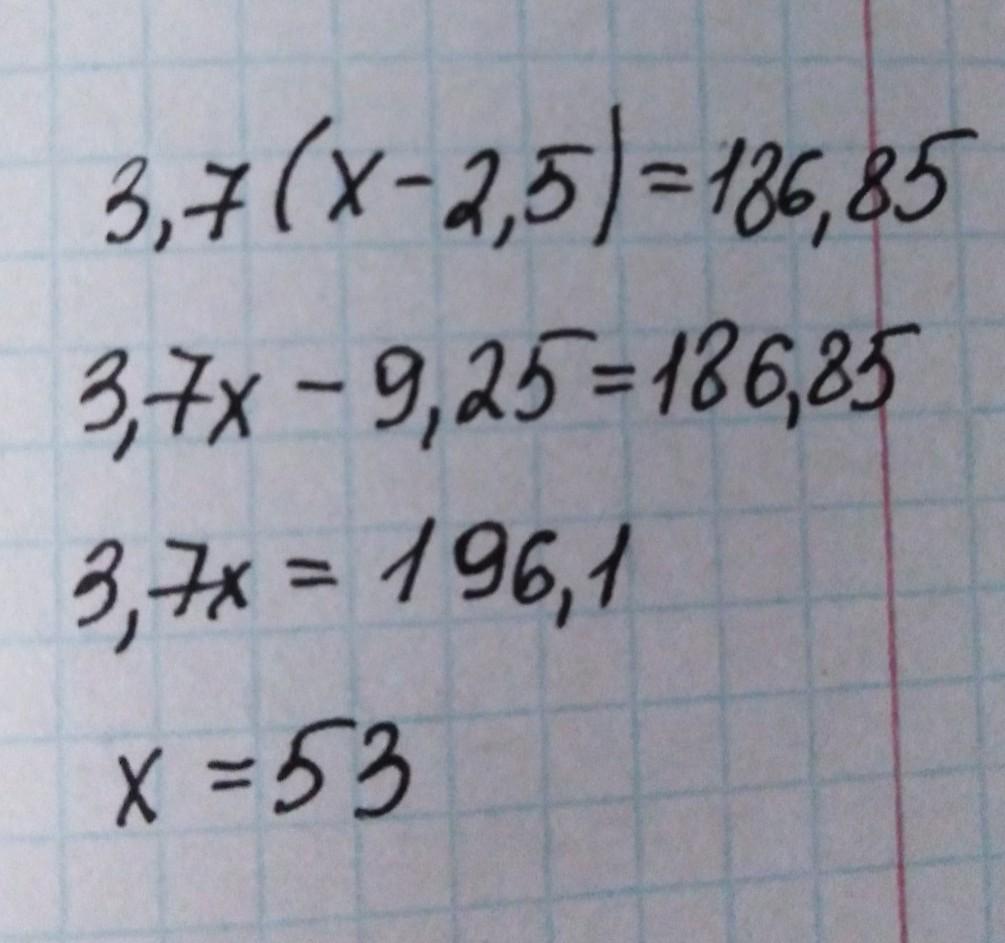 3,7(x-2,5)=186,85
3,7x-9,25=186,85
3,7x=196,1
x=53